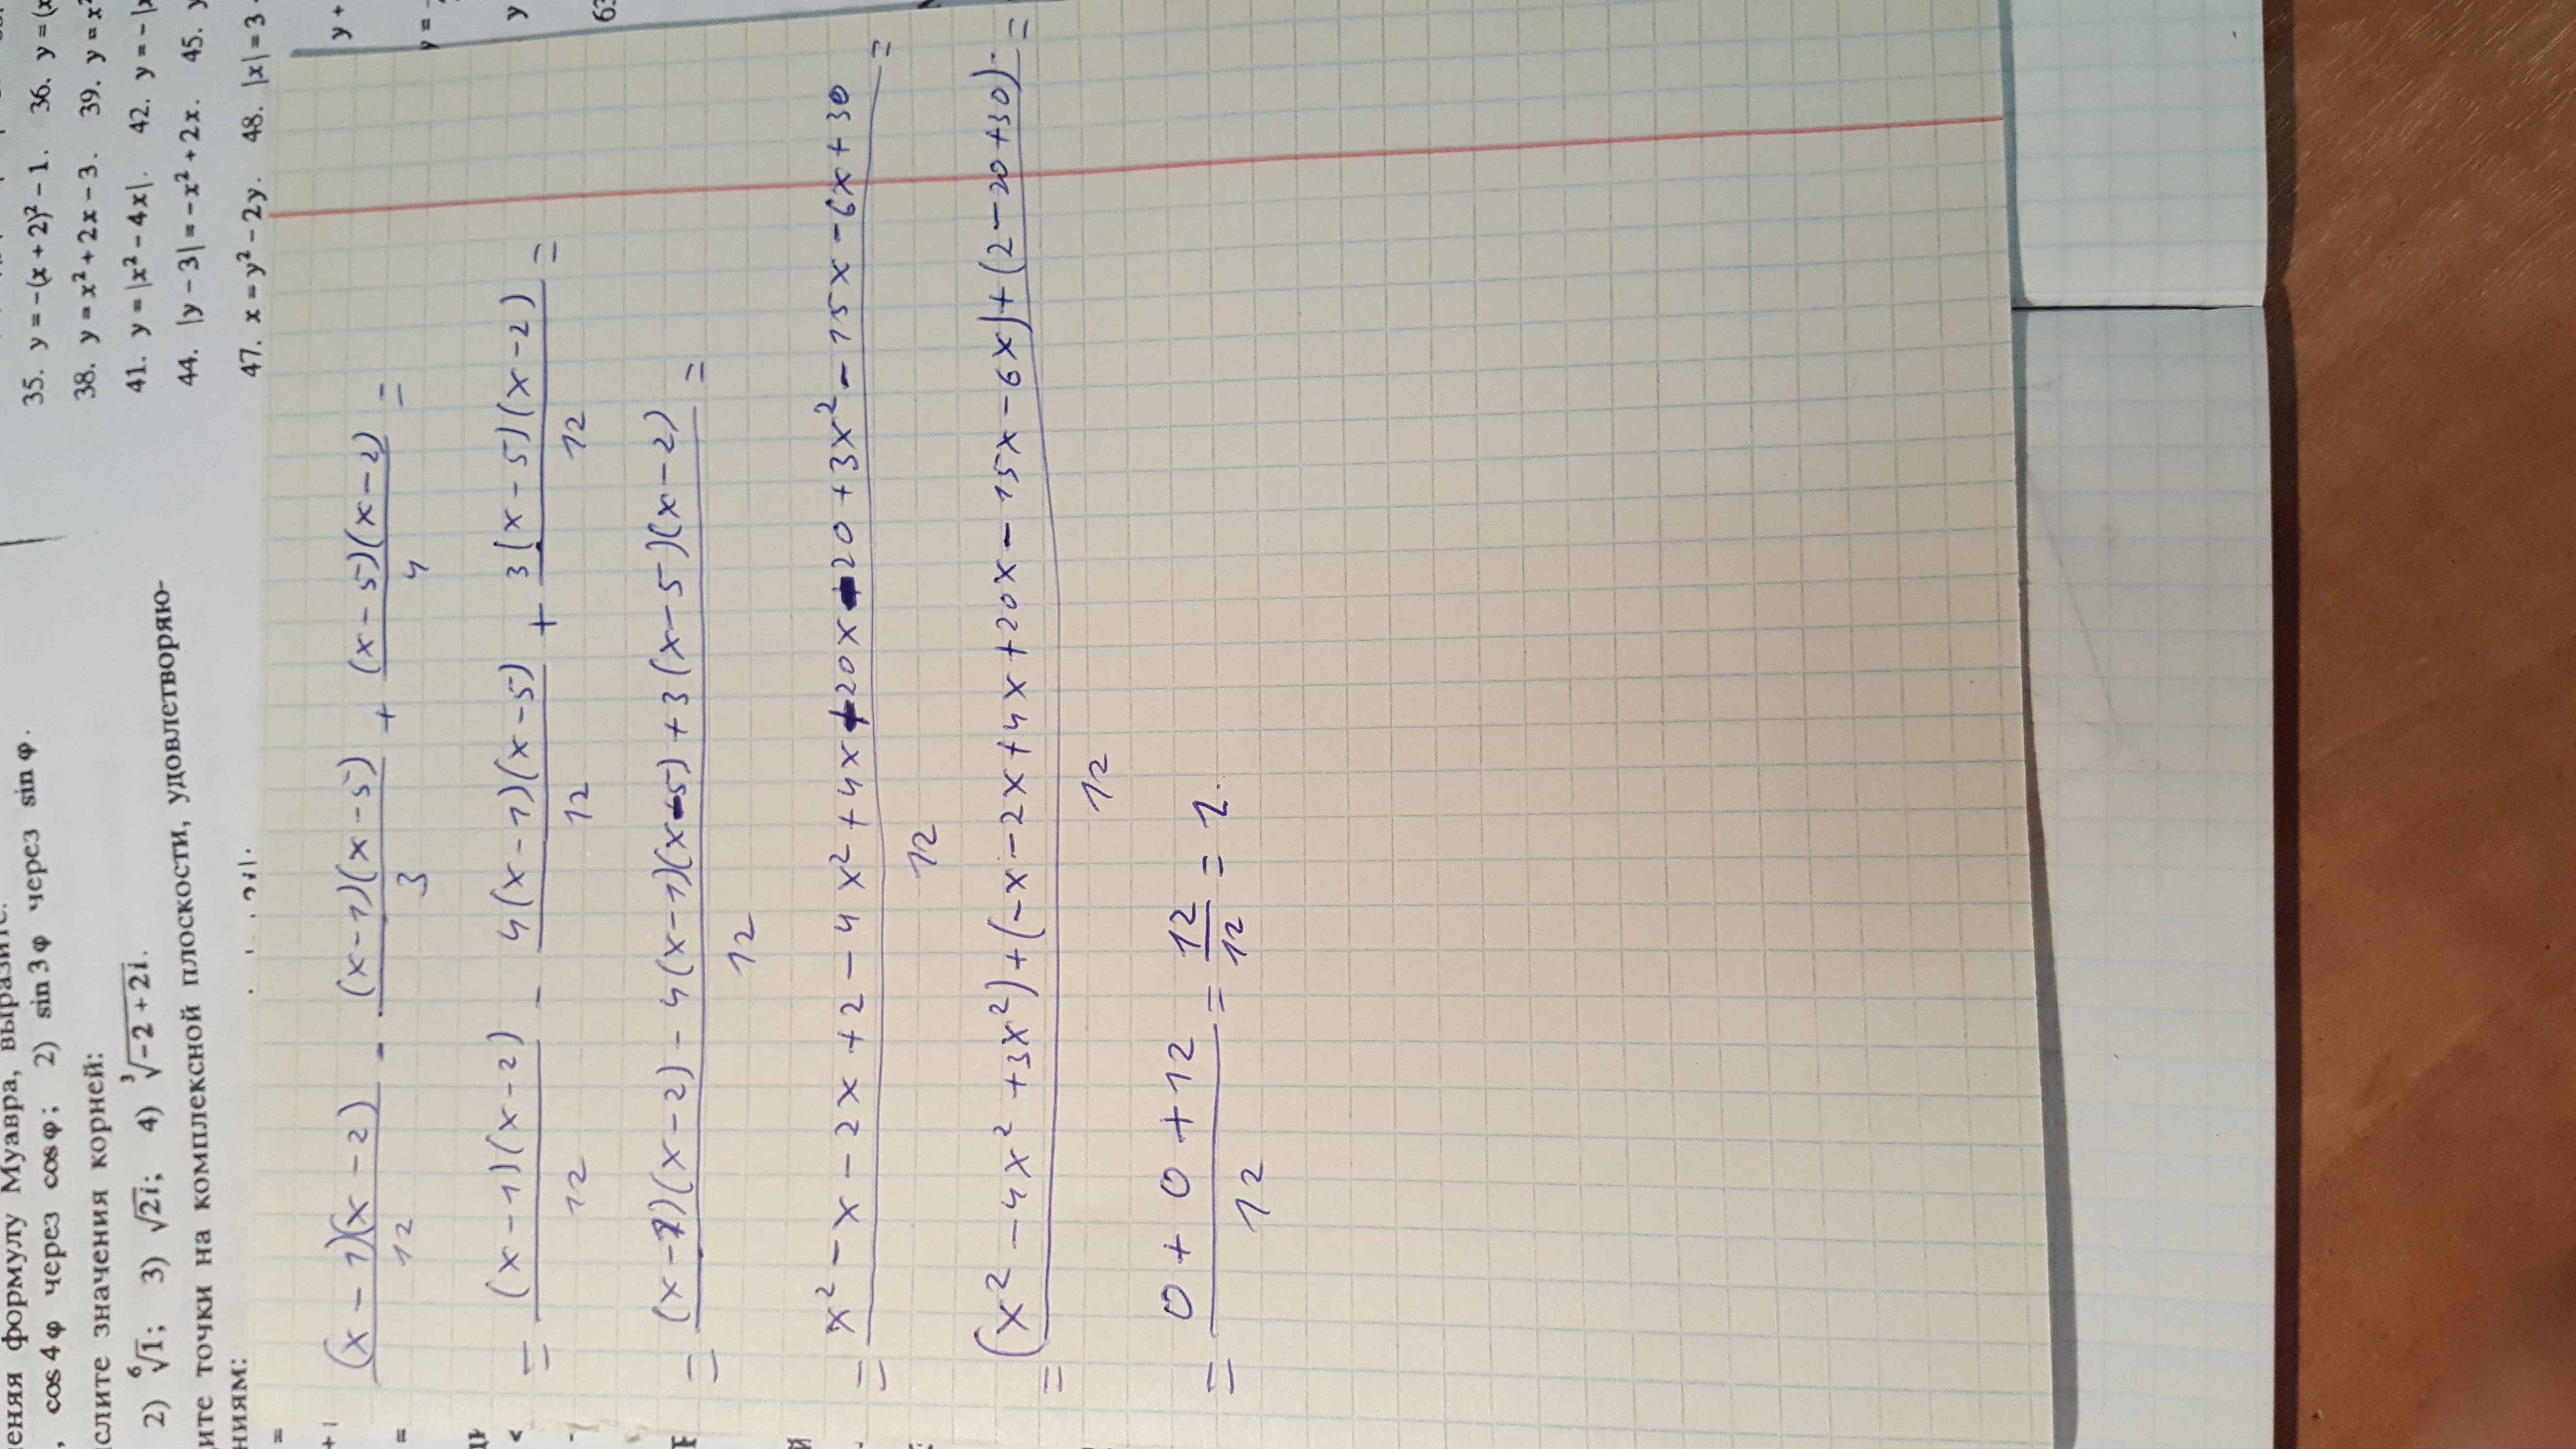 еняя формулу Муавра,
cos 4φ через cos φ; 2) sin 3φ через sin φ.
слите значения корней:
2) ⁶√1; 3) √2i; 4) ³√-2 + 2i.
ите точки на комплексной плоскости, удовлетворяю-
ниям:
35. y = -(x + 2)² - 1. 36. y = (x
38. y = x² + 2x - 3. 39. y = x²
41. y = |x² - 4x|. 42. y = -|x
44. |y - 3| = -x² + 2x. 45. y
47. x = y² - 2y. 48. |x| = 3 -
y +
y =
y
63
(x - 1)(x - 2)/12 - (x - 1)(x - 5)/3 + (x - 5)(x - 2)/4 =
= (x - 1)(x - 2)/12 - 4(x - 1)(x - 5)/12 + 3(x - 5)(x - 2)/12 =
= (x - 1)(x - 2) - 4(x - 1)(x - 5) + 3(x - 5)(x - 2)/12 =
= x² - x - 2x + 2 - 4x² + 4x + 20x - 20 + 3x² - 15x - 6x + 30/12 =
= (x² - 4x² + 3x²) + (-x - 2x + 4x + 20x - 15x - 6x) + (2 - 20 + 30)/12 =
= 0 + 0 + 12/12 = 12/12 = 1.